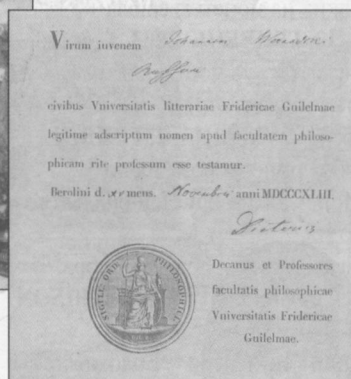 Virum iuvenem
civibus Vniversitatis litterariae Fridericae Guilelmae
legitime adscriptum nomen apud facultatem philoso-
phicam rite professum esse testamur.
Berolini d. xv mens. Novembris anni MDCCCXLIII.
Decanus et Professores
facultatis philosophicae
Vniversitatis Fridericae
Guilelmae.